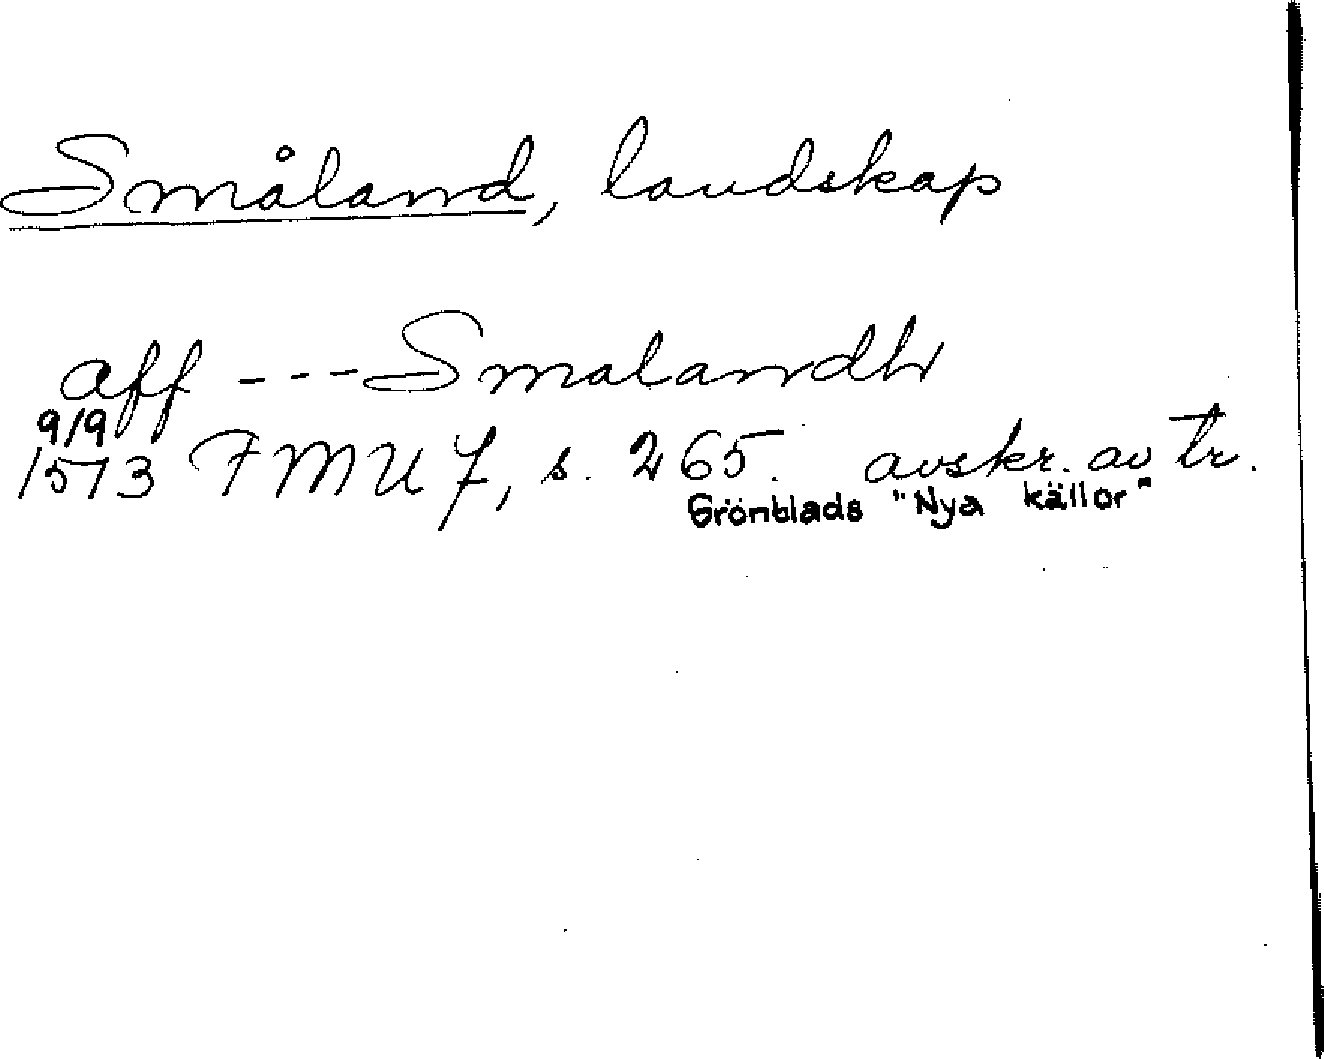 Småland, landskap
aff --- Smalandh
9/9
1513 FMU 7, s. 265. avskr. av tr.
Grönblads "Nya källor"